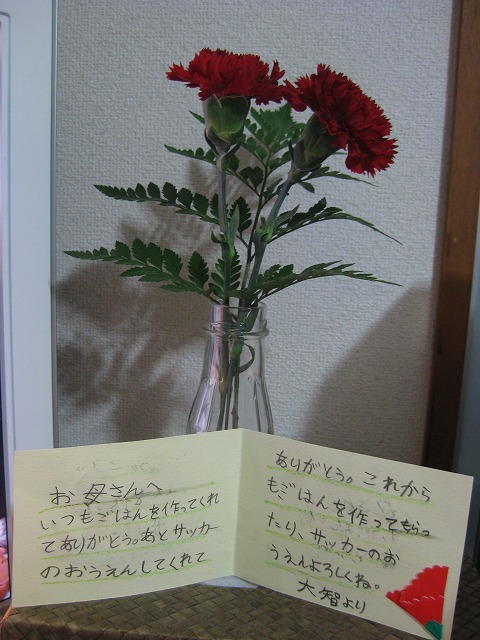 お母さんへ
いつもごはんを作ってくれ
てありがとう。あとサッカー
のおうえんしてくれて
ありがとう。これから
もごはんを作ってもらっ
たり、サッカーのお
うえんよろしくね。
大智より